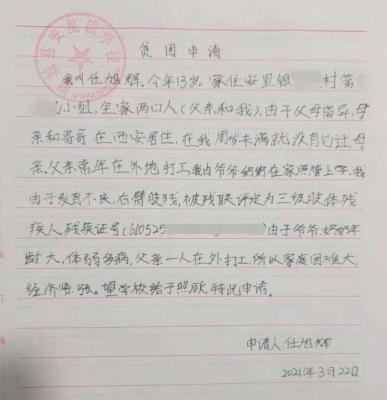 贫困申请
我叫任旭辉。今年13岁。家住安里镇 村第
小组,全家两口人(父亲和我),由于父母 ,母
亲和哥哥在西安居住,在我周岁未满就没有见过母
亲,父亲常年在外地打工我由爷爷奶奶在家照管上学,我
由于发育不良,右臂肢残,被残联评定为三级肢体残
疾人残疾证号(610525 )由于爷爷奶奶年
龄大,体弱多病,父亲一人在外打工,所以家庭困难大,
经济紧张。望学校给予照顾,特此申请。
申请人:任旭辉
2021年3月22日